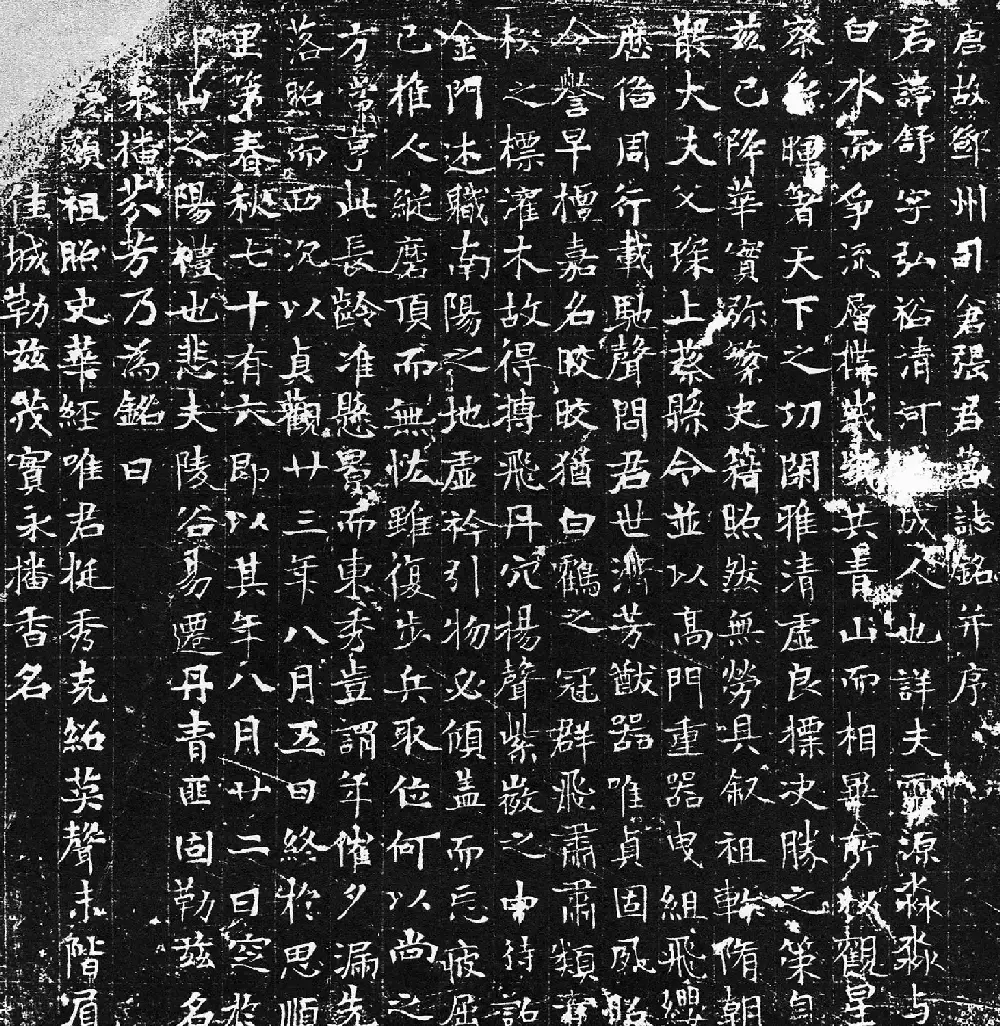 唐故鄧州司倉張君墓誌銘并序
君諱舒字弘裕清河成人也詳夫靈源淼淼与
白水而爭流層構峩峩共青山而相畢窮秘觀星
察暉著天下之切閑雅清虛良摽決勝之策自
茲已降華實弥繁史籍照然無勞具叙祖幹隋朝
散大夫父琛上蔡縣令並以高門重器曳組飛纓
應侶周行載馳聲問君世濟芳猷器唯貞固夙昭
令譽早檀嘉名皎皎猶白鶴之冠群飛肅肅類
松之標濯木故得摶飛丹穴楊聲紫嶽之申待詔
金門述職南陽之地虛衿引物必傾盖而忘疲屈
己推人縱磨頂而無悋雖復步兵取位何以尚之
方當亨此長齡准懸景而東秀豈謂年催夕漏先
落昭而西沉以貞觀廿三年八月五日終於思順
里第春秋七十有六即以其年八月廿二日窆於
山之陽禮也悲夫陵谷易遷丹青匪固勒茲名
永播芬芳乃為銘曰
顯祖照史華經唯君挺秀克紹英聲未階眉
佳城勒茲茂實永播香名